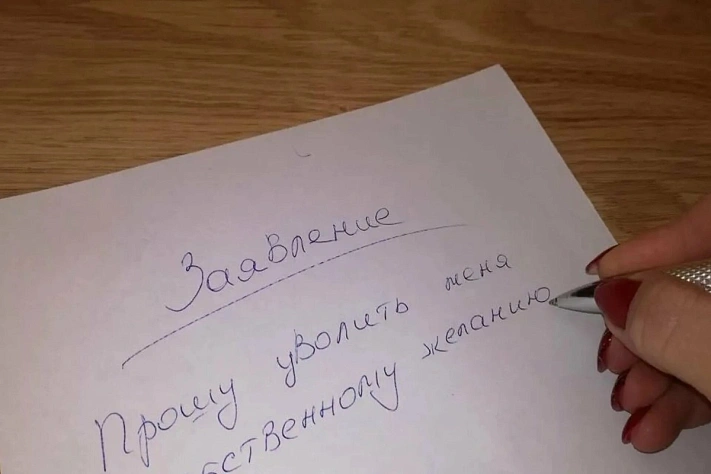 Заявление
Прошу уволить меня
бственному желанию